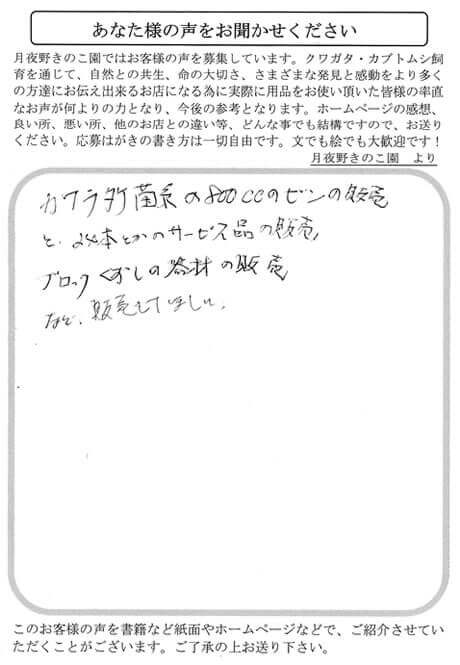 あなた様の声をお聞かせください
月夜野きのこ園ではお客様の声を募集しています。クワガタ・カブトムシ飼
育を通じて、自然との共生、命の大切さ、さまざまな発見と感動をより多く
の方達にお伝え出来るお店になる為に実際に用品をお使い頂いた皆様の率直
なお声が何よりの力となり、今後の参考となります。ホームページの感想、
良い所、悪い所、他のお店との違い等、どんな事でも結構ですので、お送り
ください。応募はがきの書き方は一切自由です。文でも絵でも大歓迎です！
月夜野きのこ園　より
カワラタケ菌糸の800ccのビンの販売
と、24本とかのサービス品の販売
ブロックくずしの器材の販売
など、販売してほしい。
このお客様の声を書籍など紙面やホームページなどで、ご紹介させてい
ただくことがございます。ご了承の上お送り下さい。